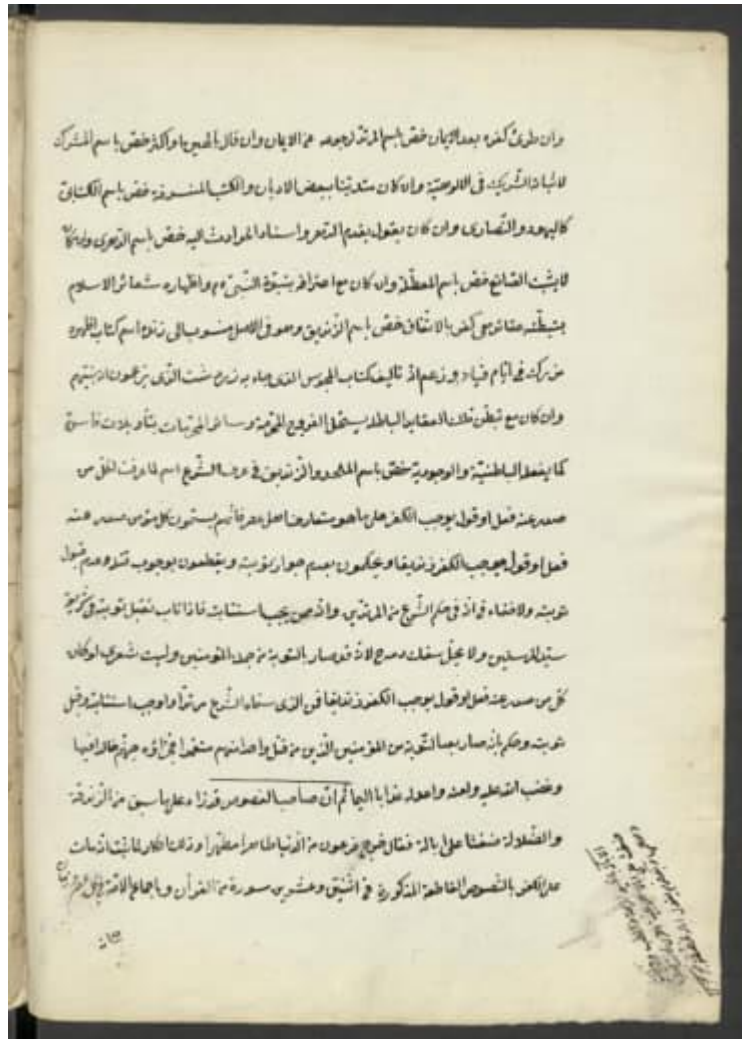 وان طرئ كفره بعد الايمان خصّ باسم المرتدّ لرجوعه عن الايمان وان قال بالهين او اكثر خصّ باسم المشرك
لاثباته الشريك فى الالوهيّة وان كان متديّنا ببعض الاديان والكتب المنسوخة خصّ باسم الكتابىّ
كاليهود والنّصارى وان كان يقول بقدم الدّهر واسناد الحوادث اليه خصّ باسم الدّهرى وان كان
لا يثبت الصّانع خصّ باسم المعطّلة وان كان مع اعترافه بنبوّة النّبىّ وم واظهاره شعائر الاسلام
يتبطّن عقائد هى كفر بالاتّفاق خصّ باسم الزّنديق وهو فى الاصل منسوب الى زند اسم كتاب اظهره
مزدك فى ايّام قباد وزعم انّه تاليف كتاب المجوس الذى جاء به زردشت الّذى يزعمون انه نبيّهم
وان كان مع تبطّن تلك العقايد الباطلة يستحلّ الفروج المحرّمة وسائر المحرّمات بتأويلات فاسدة
كما يفعله الباطنيّة والوجوديّة خصّ باسم الملحد والزّنديق فى عرف الشّرع اسم لما عرفت لا لكل من
صدر عنه فعل او قول يوجب الكفر على ما هو متعارف اهل فانّهم يسمّون كل مؤمن صدر عنه
فعل او قول يوجب الكفر زنديقا ويحكمون بعدم جواز توبته ويقطعون بوجوب قتله وعدم قبول
توبته ولا خفاء فى انّه فى حكم الشّرع من المرتدّين وانّه ممن يجب استتابته فاذا تاب تقبل توبته فى شريعة
سيّد المرسلين ولا يحلّ سفك دمه لانّه قد صار بالتوبة من جملة المؤمنين وليت شعرى لو كان
كل من صدر عنه فعل او قول يوجب الكفر زنديقا فمن الذى سمّاه الشّرع مرتدّا واوجب استتابته وقبل
توبته وحكم بانّه صار بعد التّوبة من المؤمنين الّذين من قتل واحدا منهم متعمّدا فجزاؤه جهنّم خالدا فيها
وغضب الله عليه ولعنه واعدّ له عذابا اليما ثم انّ صاحب الفصوص قد زاد على ما سبق من الزندقة
والضّلالة ضغثا على ابالة فقال خرج فرعون من الدّنيا طاهرا مطهّرا وذلك انكار لما ثبت انّه مات
على الكفر بالنّصوص القاطعة المذكورة فى اثنين وعشرين سورة من القرآن وباجماع الامّة فى كل